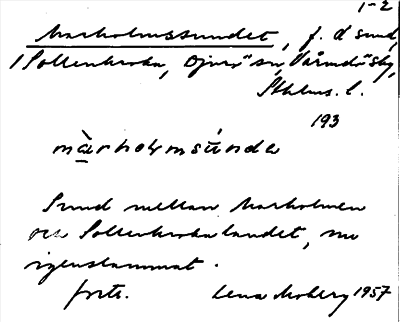 1-2
Marholmssundet, f. d sund,
Sollenkroka, Djurö sn, Värmdö skg,
Sthlms. l.
193
màrholmsúnda
Sund mellan Marholmen
och Sollenkrokalandet, nu
igenslammat.
forts. Lena Moberg 1957